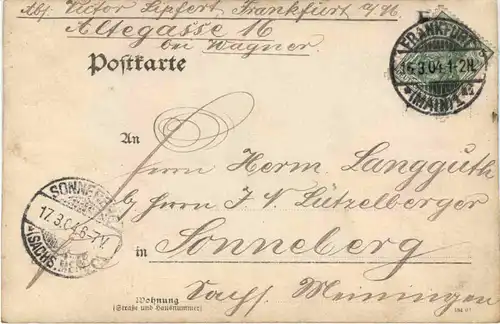 Abs. Victor Lipfert, Frankfurt a/M
Altegasse 16
bei Wagner.
Postkarte
FRANKFURT
16.3.04.1-2N.
*(MAIN)
An
Herrn Herm. Langguth
b/ Herrn J. N. Lützelberger
in Sonneberg
Sachs. Meiningen
SONNEBERG
17.3.04.6-7V.
*(SACHS. MEIN.)
Wohnung
(Straße und Hausnummer)